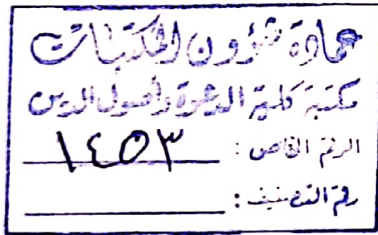 عمادة شؤون المكتبات
مكتبة كلية الدعوة وأصول الدين
الرقم الخاص : ١٤٥٣
رقم التصنيف :